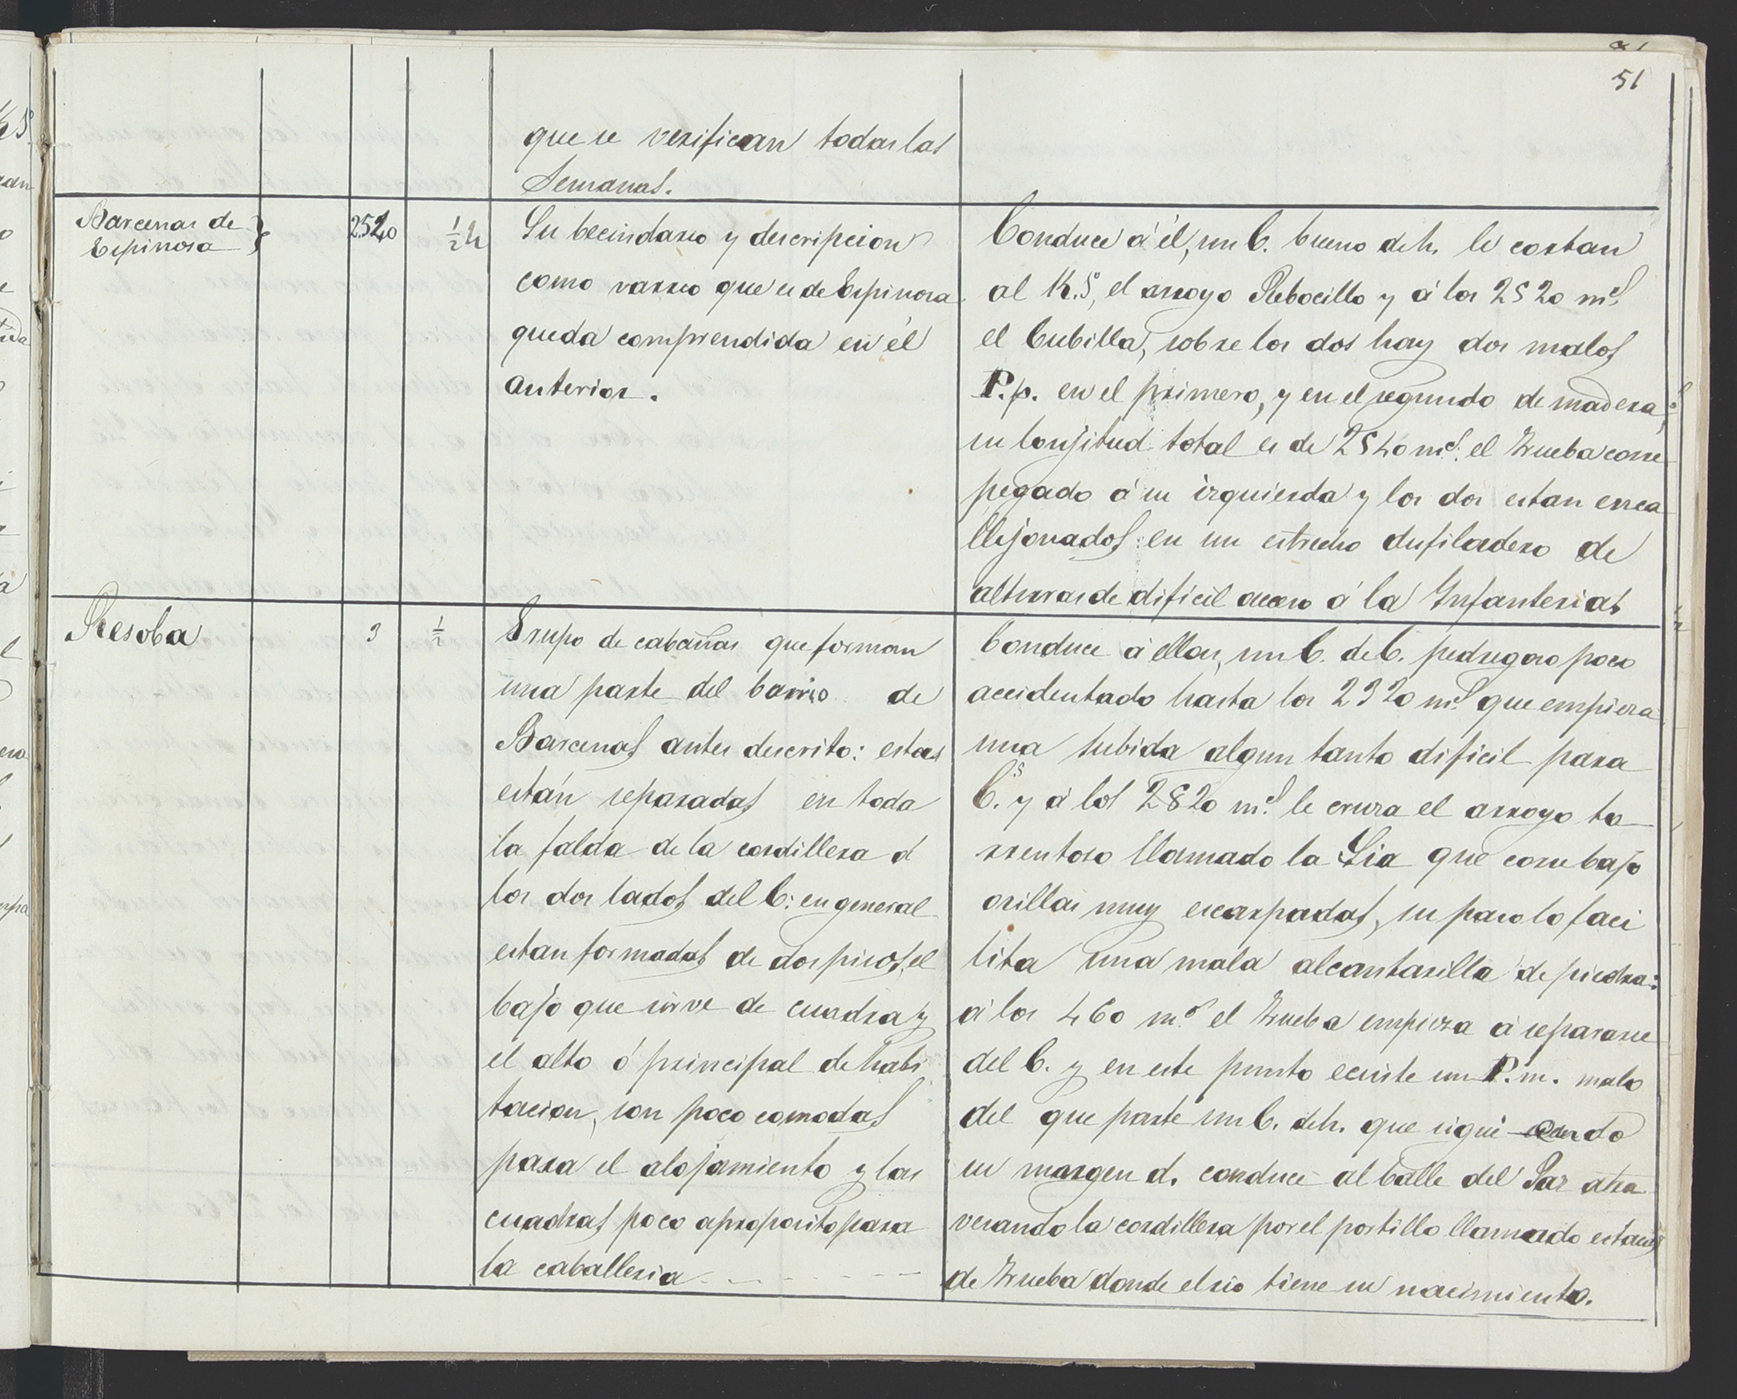 51
que se verifican todas las
Semanas.
Barcenas de
Espinosa
2520
½ h
Su becindareo y descripcion
como varreo que es de Espinosa
queda comprendida en él
anterior.
Conduce á él, un C. bueno de h. le cortan
al K.º, el arroyo Rebocillo y á los 2520 m.s
el Cubilla, sobre los dos hay dos malos
P. p. en el primero, y en el segundo de madera,
su lonjitud total es de 2540 m.s: el Trueba corre
pegado á su izquierda y los dos estan enca
llejonados en un estrecho desfiladero de
alturas de dificil acceso á la Infanterias
Resoba
3
½
Grupo de cabañas que forman
una parte del barrio de
Barcenas antes descrito: estas
están separadas en toda
la falda de la cordillera á
los dos lados del C: en general
estan formadas de dos pisos, el
bajo que sirve de cuadra y
el alto ó principal de habi
tacion, son poco comodas
para el alojamiento y las
cuadras poco aproposito para
la caballeria
Conduce á ellas, un C. de C. pedregoso poco
accidentado hasta los 2320 m.s que empieza
una subida algun tanto dificil para
C.s y á los 2820 m.s le cruza el arroyo to
rrentoso llamado la Sia que corre bajo
orillas muy escarpadas, su paso lo faci
lita una mala alcantarilla de piedra:
á los 460 m.s el Trueba empieza á separarse
del C. y en este punto ecsiste un P. m. malo
del que parte un C. de h. que sigui endo
su margen d. conduce al balle del Paz atra
vesando la cordillera por el portillo llamado estacas
de Trueba donde el rio tiene su nacimiento.